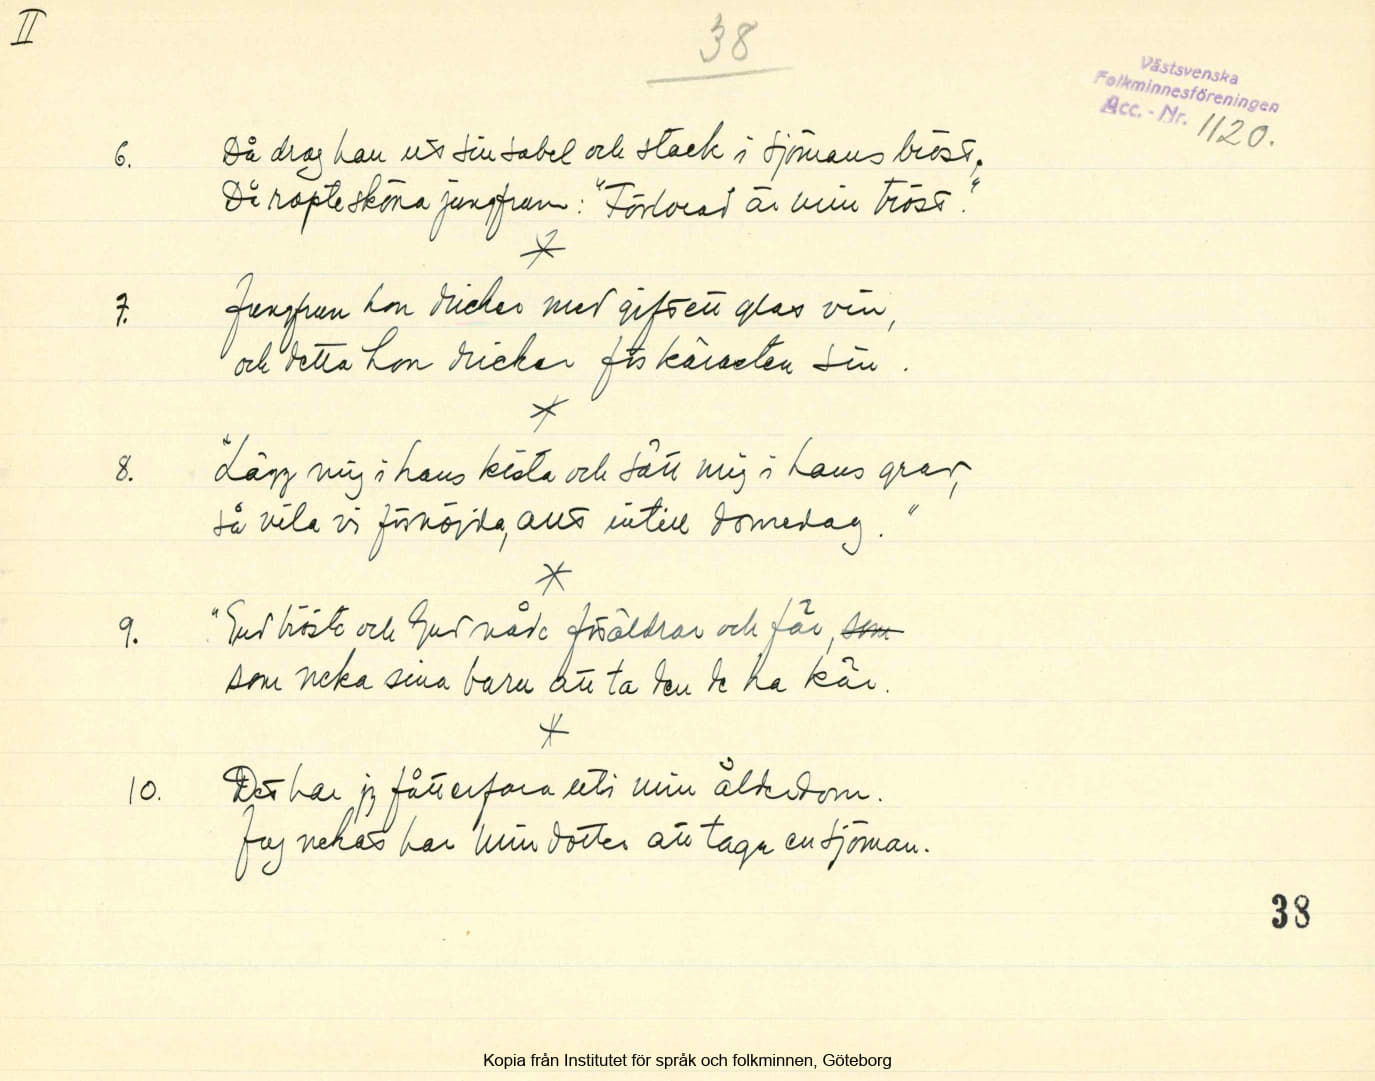 II
38
Västsvenska
Folkminnesföreningen
Acc. - Nr. 1120.
6. Då drog han ut sin sabel och stack i sjömans bröst.
Då ropte sköna jungfrun: "Förlorad är min tröst."
7. Jungfrun hon dricker med gift ett glas vin,
och detta hon dricker för kärasten sin.
8. "Lägg mig i hans kista och sätt mig i hans grav,
så vila vi förnöjda, allt intill domedag."
9. "Gud tröste och Gud nåde föräldrar och fär, som
som neka sina barn att ta den de ha kär.
10. Det har jg fått erfara uti min ålderdom.
Jag nekat har min dotter att taga en sjöman.
38
Kopia från Institutet för språk och folkminnen, Göteborg